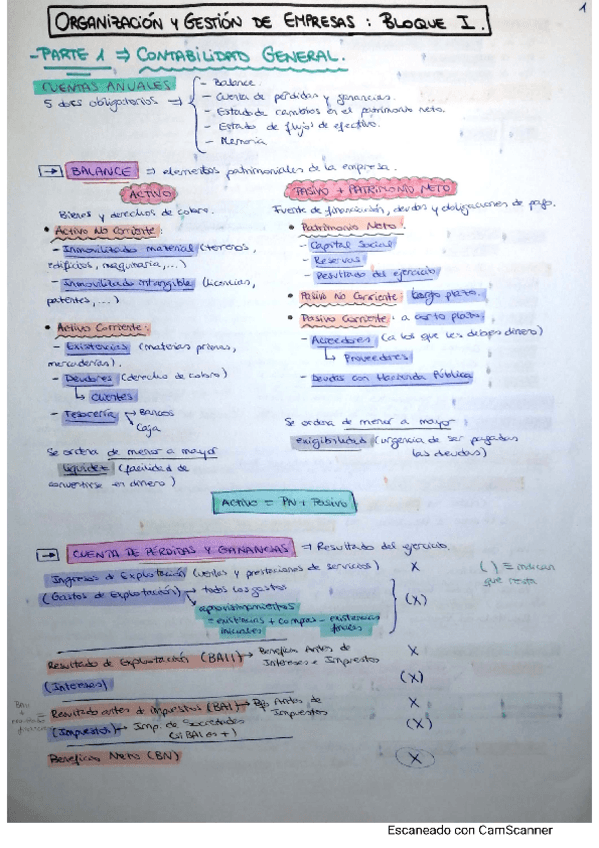 1
ORGANIZACIÓN Y GESTIÓN DE EMPRESAS : BLOQUE I.
- PARTE 1 ⇒ CONTABILIDAD GENERAL.
CUENTAS ANUALES
5 docs obligatorios ⇒
- Balance.
- Cuenta de pérdidas y ganancias.
- Estado de cambios en el patrimonio neto.
- Estado de flujos de efectivo.
- Memoria
→ BALANCE ⇒ elementos patrimoniales de la empresa.
ACTIVO
Bienes y derechos de cobro.
• Activo No Corriente:
- Inmovilizado material (terrenos,
edificios, maquinaria,...)
- Inmovilizado intangible (licencias,
patentes,...)
• Activo Corriente:
- Existencias (materias primas,
mercaderías).
- Deudores (derecho de cobro)
↳ Clientes
- Tesorería → Bancos
Caja
Se ordena de menor a mayor
liquidez (facilidad de
convertirse en dinero)
PASIVO + PATRIMONIO NETO
Fuente de financiación, deudas y obligaciones de pago.
• Patrimonio Neto:
- Capital Social
- Reservas
- Resultado del ejercicio
• Pasivo No Corriente: largo plazo.
• Pasivo Corriente: a corto plazo.
- Acreedores (a los que les debes dinero)
↳ Proveedores
- Deudas con Hacienda Pública
Se ordena de menor a mayor
exigibilidad (urgencia de ser pagadas
las deudas)
ACTIVO = PN + Pasivo
→ CUENTA DE PÉRDIDAS Y GANANCIAS ⇒ Resultado del ejercicio.
Ingresos de Explotación (ventas y prestaciones de servicios) X
( ) = indican
que resta
(Gastos de Explotación) → todos los gastos
aprovisionamientos (X)
= existencias iniciales + compras - existencias finales
Resultado de Explotación (BAII) → Beneficio Antes de
Intereses e Impuestos X
(Intereses) (X)
Resultado antes de impuestos (BAI) → Bº Antes de
Impuestos X
(Impuestos) → Imp. de Sociedades
(si BAI es +) (X)
Beneficio Neto (BN) X
Escaneado con CamScanner